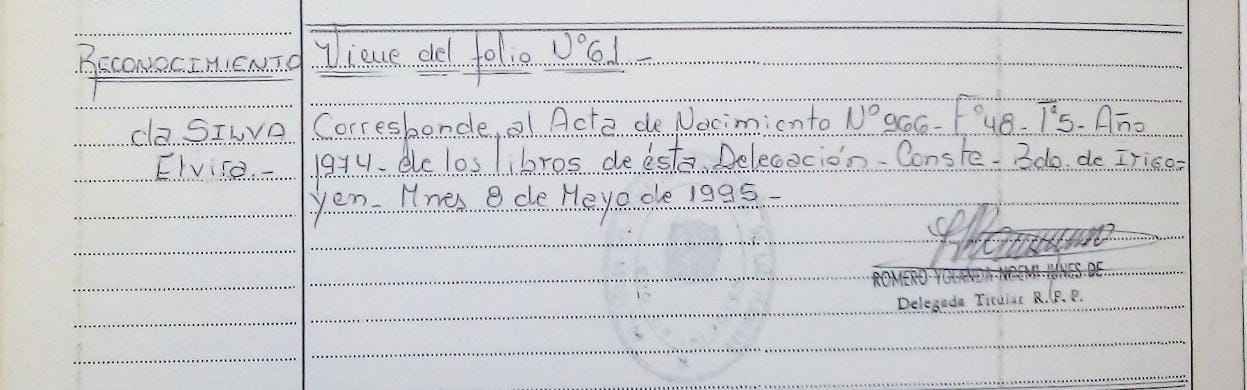 RECONOCIMIENTO
da SILVA
Elvira.-
Viene del folio N°61-
Corresponde al Acta de Nacimiento N°966- F°48- T°5- Año
1974- de los libros de ésta Delegación- Conste- Bdo. de Irigo-
yen- Mnes 8 de Mayo de 1995-
ROMERO YOLANDA NOEMI DE
Delegada Titular R.P.P.